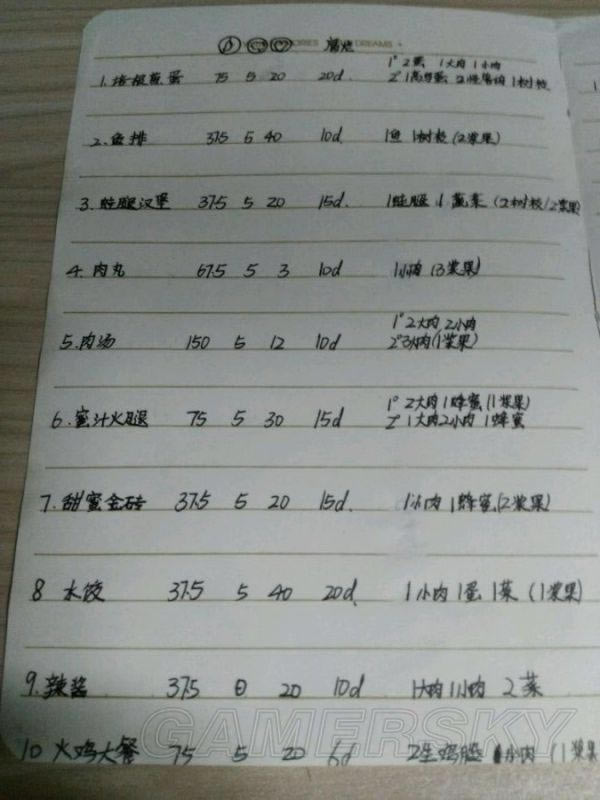 ORIES DREAMS 腐烂
1° 2蛋 1大肉 1小肉
1. 培根煎蛋 75 5 20 20d 2° 1高鸟蛋 2怪兽肉 1树枝
2. 鱼排 37.5 5 40 10d 1鱼 1树枝 (2浆果)
3. 蛙腿汉堡 37.5 5 20 15d. 1蛙腿 1蔬菜 (2树枝/2浆果)
4. 肉丸 67.5 5 3 10d 1小肉 (3浆果)
1° 2大肉 2小肉
5. 肉汤 150 5 12 10d 2° 3小肉 (1浆果)
1° 2大肉 1蜂蜜 (1浆果)
6. 蜜汁火腿 75 5 30 15d 2° 1大肉 2小肉 1蜂蜜
7. 甜蜜金砖 37.5 5 20 15d. 1小肉 1蜂蜜 (2浆果)
8 水饺 37.5 5 40 20d. 1小肉 1蛋 1菜 (1浆果)
9. 辣酱 37.5 0 20 10d 1大肉 1小肉 2菜
10 火鸡大餐 75 5 20 6d 2生鸡腿 1小肉 (1浆果
GAMERSKY